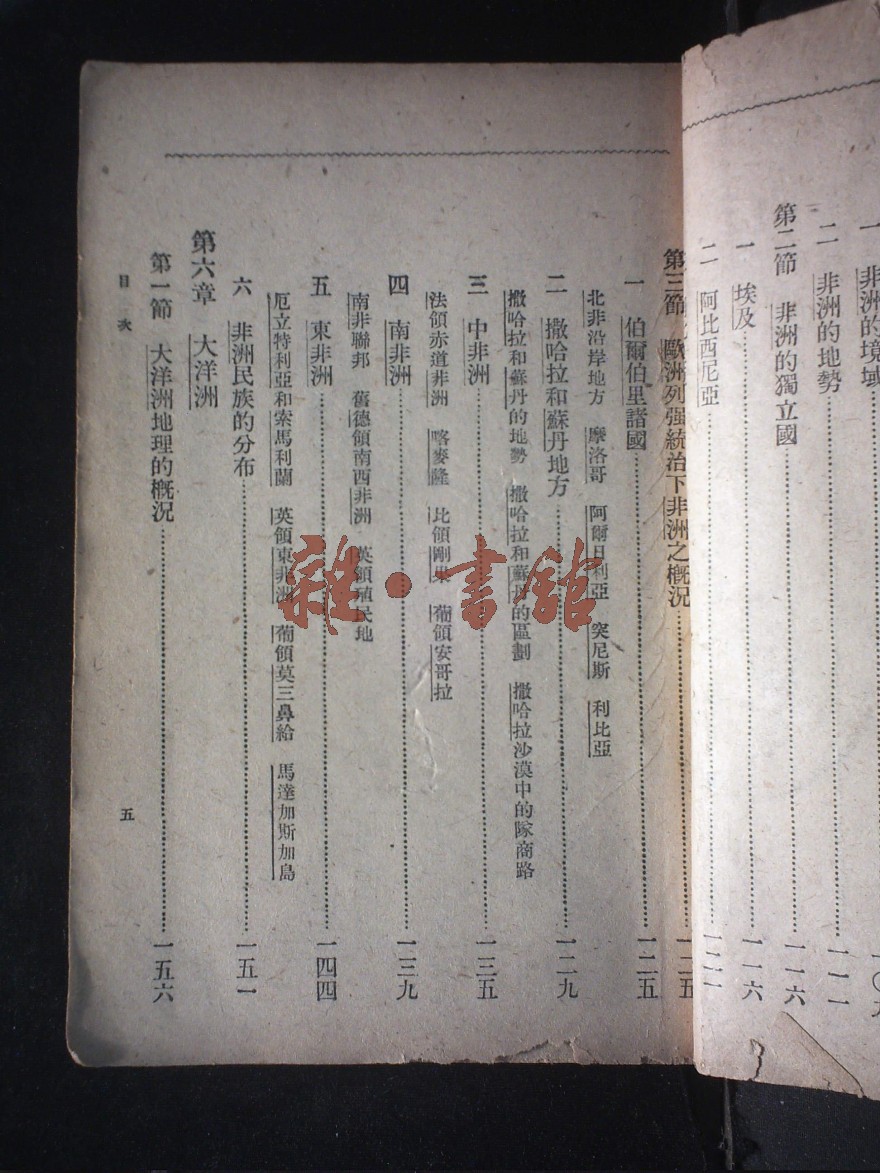 一 非洲的境域
一〇九
二 非洲的地勢
一一一
第二節 非洲的獨立國
一一六
一 埃及
一一六
二 阿比西尼亞
一二一
第三節 歐洲列强統治下非洲之概況
一二五
一 伯爾伯里諸國
一二五
北非沿岸地方 摩洛哥 阿爾日利亞 突尼斯 利比亞
二 撒哈拉和蘇丹地方
一二九
撒哈拉和蘇丹的地勢 撒哈拉和蘇丹的區劃 撒哈拉沙漠中的隊商路
三 中非洲
一三五
法領赤道非洲 喀麥隆 比領剛果 葡領安哥拉
四 南非洲
一三九
南非聯邦 舊德領南西非洲 英領殖民地
五 東非洲
一四四
厄立特利亞和索馬利蘭 英領東非洲 葡領莫三鼻給 馬達加斯加島
六 非洲民族的分布
一五一
第六章 大洋洲
第一節 大洋洲地理的概況
一五六
目次
五
雜·書館